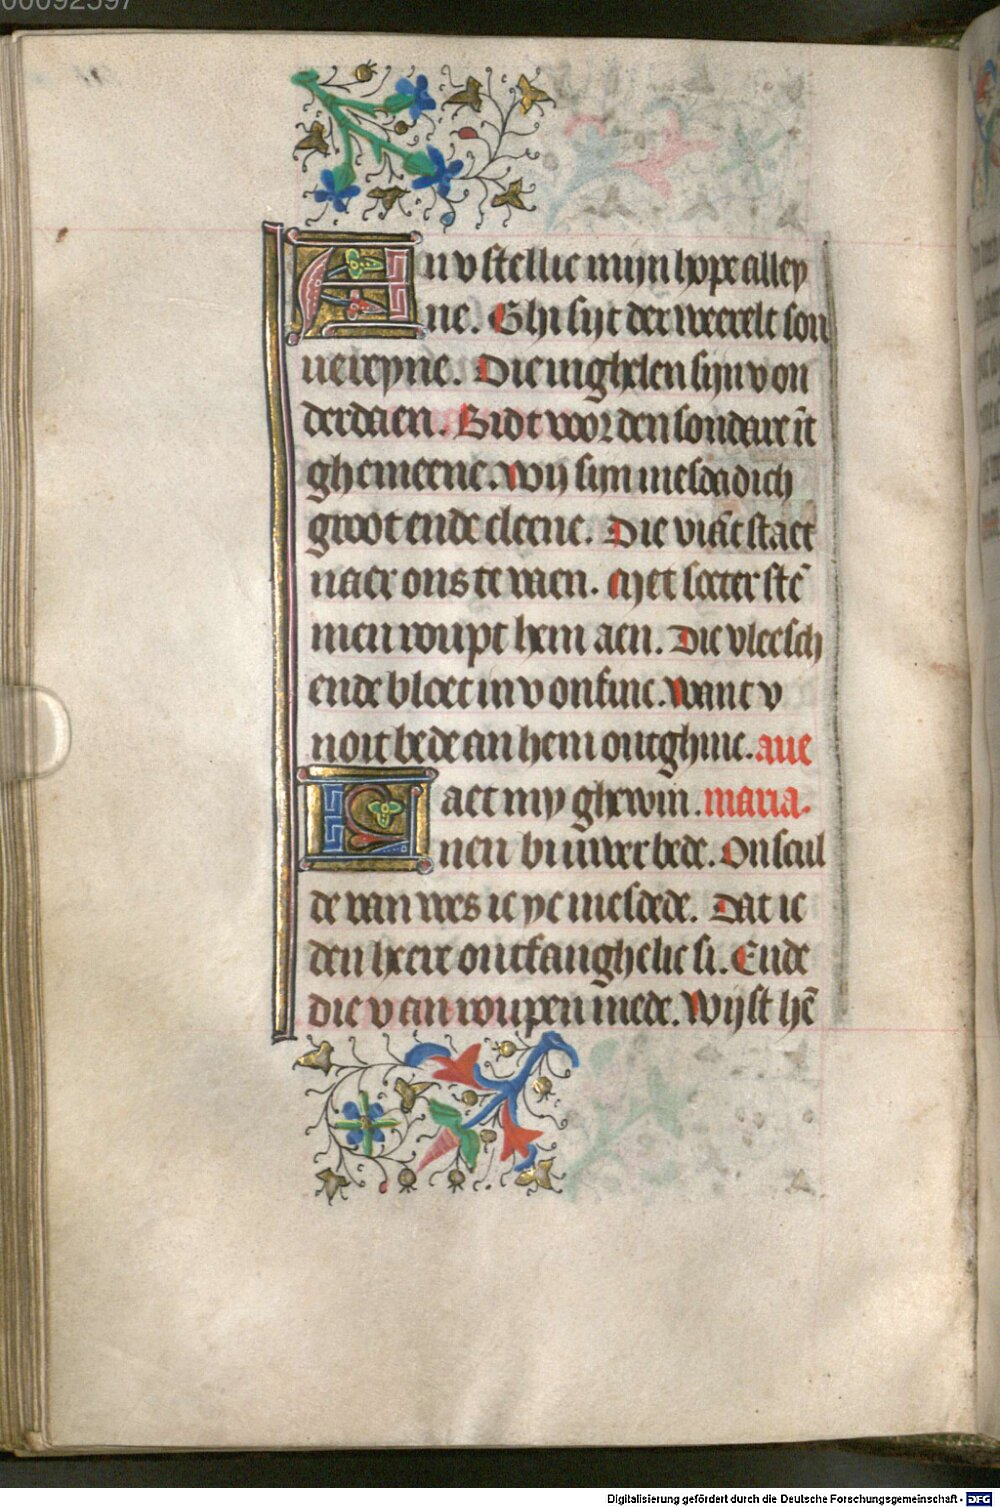 00092597
An v stellic mijn hope alley
ne. Ghi sijt der weerelt sou
uereyne. Die inghelen sijn v on
derdaen. Bidt voor den sondare īt
ghemeene. Wij sijn mesdadich
groot ende cleene. Die viāt staet
naer ons te vaen. Met soeter stē
men roupt hem aen. Die vleesch
ende bloet in v ontfinc. Want v
noit bede an hem ontghinc. aue
Laet my ghewin. maria.
nen bi uwer bede. Onscul
de van wes ic ye mesdede. Dat ic
den heere ontfanghelic si. Ende
die v an roupen mede. Wijst hē
Digitalisierung gefördert durch die Deutsche Forschungsgemeinschaft - DFG